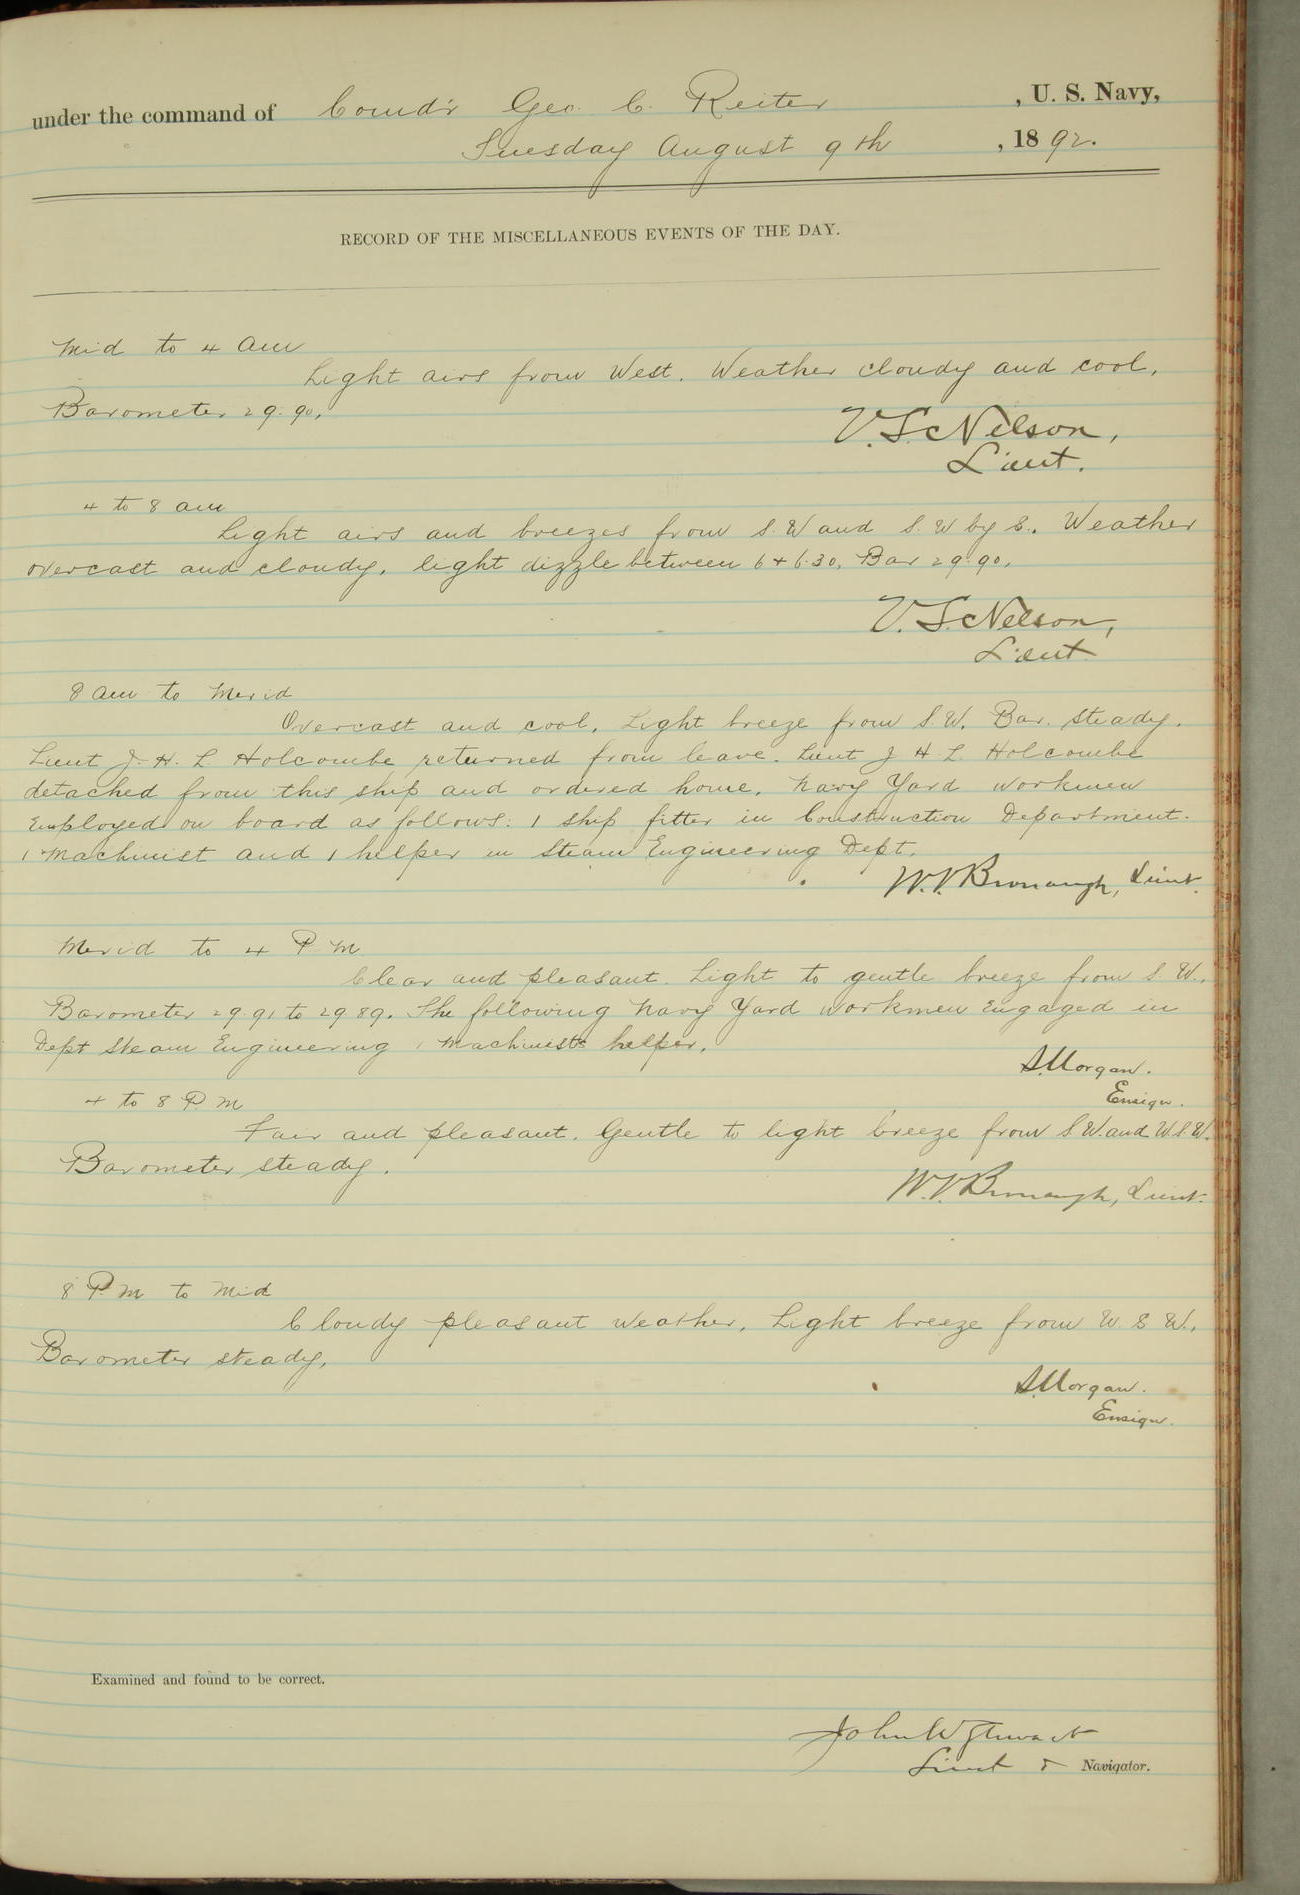 under the command of Comd'r Geo. C. Reiter, U. S. Navy,
Tuesday August 9th, 1892.
RECORD OF THE MISCELLANEOUS EVENTS OF THE DAY.
Mid to 4 am
Light airs from West. Weather cloudy and cool.
Barometer 29.90.
V. S. Nelson,
Lieut.
4 to 8 am
Light airs and breezes from S. W and S. W by S. Weather
overcast and cloudy, light dizzle between 6 + 6.30, Bar 29.90.
V. S. Nelson,
Lieut
8 am to Merid
Overcast and cool. Light breeze from S. W. Bar. steady.
Lieut J. H. L Holcombe returned from leave. Lieut J H L Holcombe
detached from this ship and ordered home. Navy Yard workmen
Employed on board as follows: 1 ship fitter in Construction Department.
1 Machinist and 1 helper in Steam Engineering Dept.
W. V. Bronaugh, Lieut.
Merid to 4 P M
Clear and pleasant. Light to gentle breeze from S. W.
Barometer 29.91 to 29.89. The following Navy Yard workmen Engaged in
Dept Steam Engineering 1 Machinists helper.
S. Morgan.
Ensign.
4 to 8 P M
Fair and pleasant. Gentle to light breeze from S W. and W. S. W.
Barometer steady.
W. V. Bronaugh, Lieut.
8 P M to Mid
Cloudy pleasant weather, Light breeze from W. S W.
Barometer steady,
S. Morgan.
Ensign.
Examined and found to be correct.
John W Stewart
Lieut & Navigator.